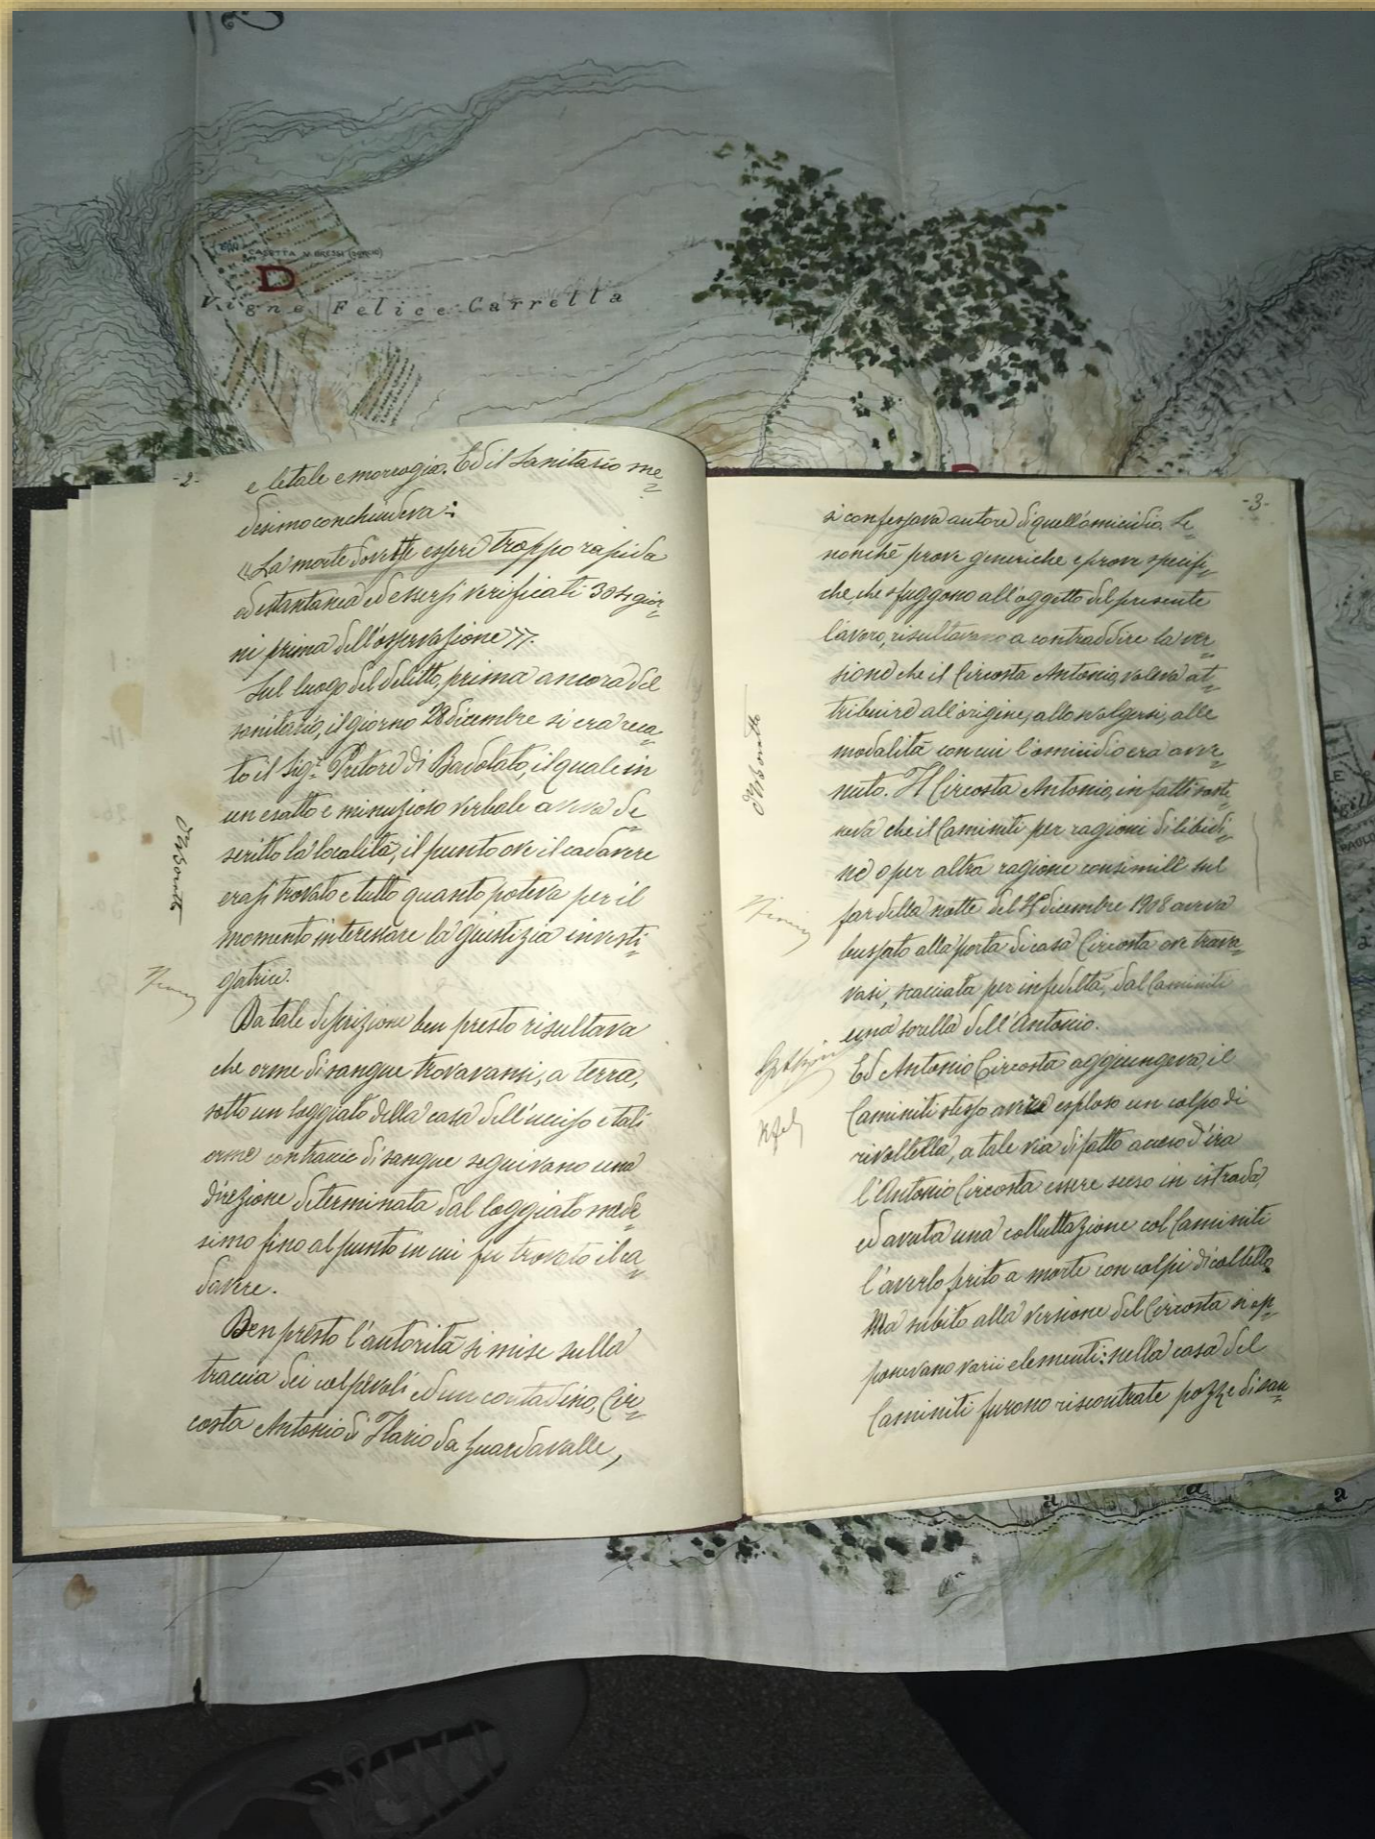 CASETTA
D
Vigne Felice Carrella
-2-
e letale emorragia. Ed il Sanitario me=
desimo conchiudeva:
«La morte dovette essere troppo rapida
ed istantanea ed essersi verificati 3 o 4 gior=
ni prima dell'osservazione».
Sul luogo del delitto, prima ancora del
sanitario, il giorno 28 dicembre si era reca=
to il Sig.r Pretore di Badolato, il quale in
un esatto e minuzioso verbale aveva de=
scritto la località, il punto ove il cadavere
erasi trovato e tutto quanto poteva per il
momento interessare la giustizia investi=
gatrice.
Da tale descrizione ben presto risultava
che orme di sangue trovavansi, a terra,
sotto un loggiato della casa dell'ucciso e tali
orme con tracce di sangue seguivano una
direzione determinata dal loggiato mede=
simo fino al punto in cui fu trovato il ca=
davere.
Ben presto l'autorità si mise sulla
traccia dei colpevoli ed un contadino, Cir=
costa Antonio di Ilario da Guardavalle,
-3-
si confessava autore di quell'omicidio. Se=
nonché prove generiche e prove specifi=
che, che sfuggono all'oggetto del presente
lavoro, risultavano a contraddire la ver=
sione che il Circosta Antonio, voleva at=
tribuire all'origine, allo svolgersi, alle
modalità con cui l'omicidio era avve=
nuto. Il Circosta Antonio, infatti soste=
neva che il Caminiti per ragioni di libidi=
ne o per altra ragione consimile sul
far della notte del dicembre 1908 aveva
bussato alla porta di casa Circosta ove trova=
vasi, scacciata per infedeltà, dal Caminiti
una sorella dell'Antonio.
Ed Antonio Circosta aggiungeva, il
Caminiti stesso avea esploso un colpo di
rivoltella, a tale via di fatto acceso d'ira
l'Antonio Circosta essere sceso in istrada,
ed avuta una colluttazione col Caminiti
l'averlo ferito a morte con colpi di coltello.
Ma subito alla versione del Circosta si op=
ponevano varii elementi: nella casa del
Caminiti furono riscontrate pozze di san=
a
a
a